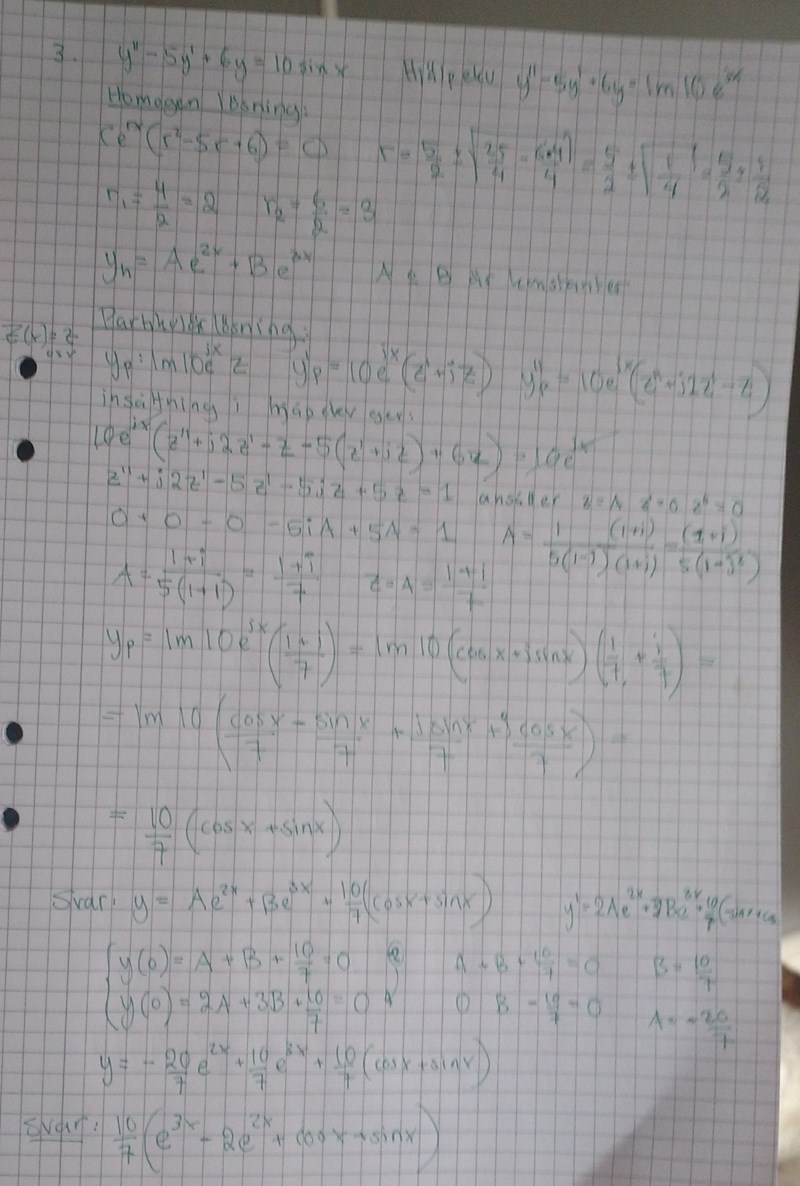 3. y'' - 5y' + 6y = 10 sinx Hjälpekv y'' - 5y' + 6y = Im 10 e^{jx}
Homogen lösning:
Ce^{rx}(r² - 5r + 6) = 0 r = 5/2 ± √(25/4 - 6·4/4) = 5/2 ± √(1/4) = 5/2 ± 1/2
r₁ = 4/2 = 2 r₂ = 6/2 = 3
y_h = Ae^{2x} + Be^{3x} A & B är konstanter
Partikulär lösning:
z(x) = z
y_p = Im 10e^{jx} z y'_p = 10e^{jx}(z' + jz) y''_p = 10e^{jx}(z'' + j2z' - z)
insättning i ger:
10e^{jx}(z'' + j2z' - z - 5(z' + jz) + 6z) = 10e^{jx}
z'' + j2z' - 5z' - 5jz + 5z = 1 ansätter z = A z' = 0 z'' = 0
0 + 0 - 0 - 5jA + 5A = 1 A = 1/(5(1-j)) (1+j)/(1+j) = (1+j)/(5(1-j²))
A = (1+j)/(5(1+1)) = (1+j)/7 z = A = (1+j)/7
y_p = Im 10e^{jx}((1+j)/7) = Im 10(cosx + jsinx)(1/7 + j/7) =
= Im 10 (cosx/7 - sinx/7 + jsinx/7 + jcosx/7) =
= 10/7 (cosx + sinx)
Svar: y = Ae^{2x} + Be^{3x} + 10/7(cosx + sinx) y' = 2Ae^{2x} + 3Be^{3x} + 10/7(-sinx + cos
{ y(0) = A + B + 10/7 = 0 A + B + 10/7 = 0 B = 10/7
{ y(0) = 2A + 3B + 10/7 = 0 0 B - 10/7 = 0 A = -20/7
y = - 20/7 e^{2x} + 10/7 e^{3x} + 10/7 (cosx + sinx)
Svar: 10/7 (e^{3x} - 2e^{2x} + cosx + sinx)